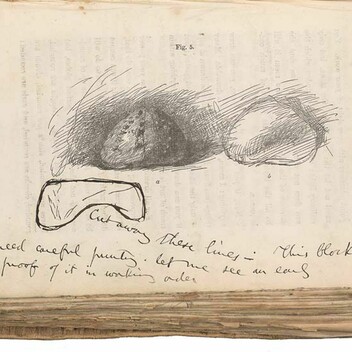 Fig. 5.
a
b
Cut away these lines - This block
need careful printing. let me see an early
proof of it in working order